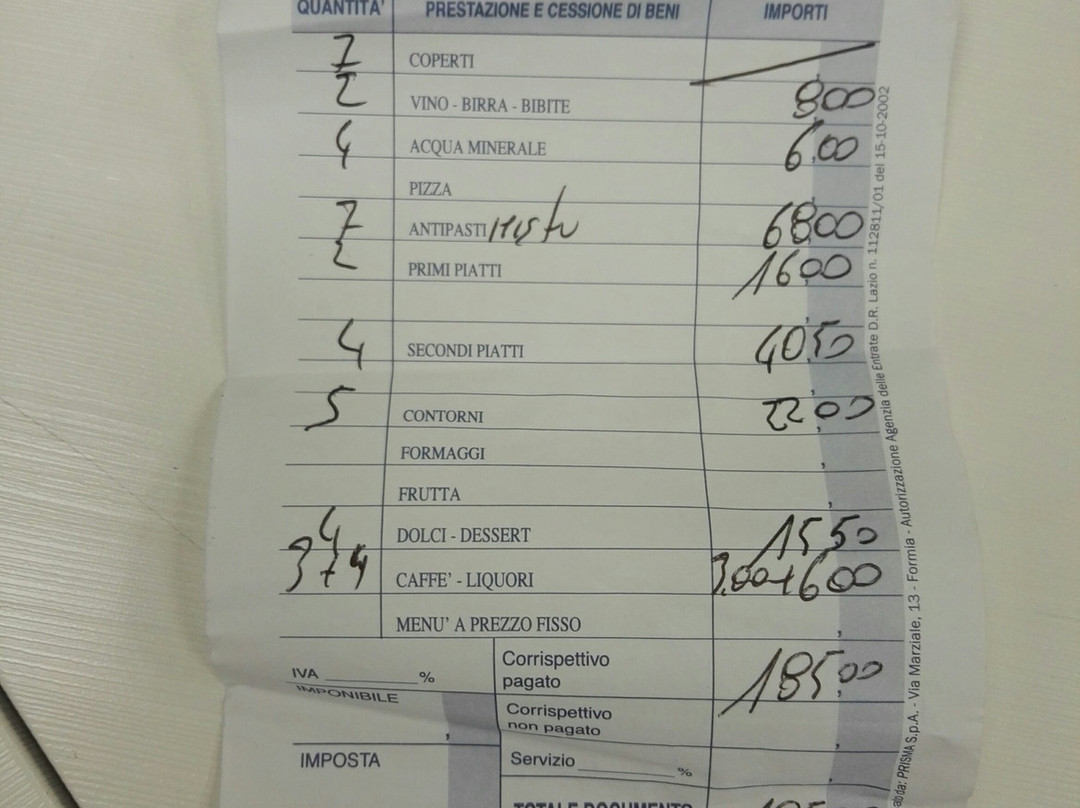 QUANTITA' PRESTAZIONE E CESSIONE DI BENI IMPORTI
7 COPERTI
2 VINO - BIRRA - BIBITE 8,00
4 ACQUA MINERALE 6,00
PIZZA
7 ANTIPASTI misto 68,00
2 PRIMI PIATTI 16,00
4 SECONDI PIATTI 40,50
5 CONTORNI 22,00
FORMAGGI
FRUTTA
4 DOLCI - DESSERT 15,50
3+4 CAFFE' - LIQUORI 3,00+6,00
MENU' A PREZZO FISSO
IVA ________ %
Corrispettivo pagato 185,00
IMPONIBILE
Corrispettivo non pagato
IMPOSTA
Servizio ________ %
TOTALE DOCUMENTO
PRISMA S.p.A. - Via Marziale, 13 - Formia - Autorizzazione Agenzia delle Entrate D.R. Lazio n. 112811/01 del 15-10-2002